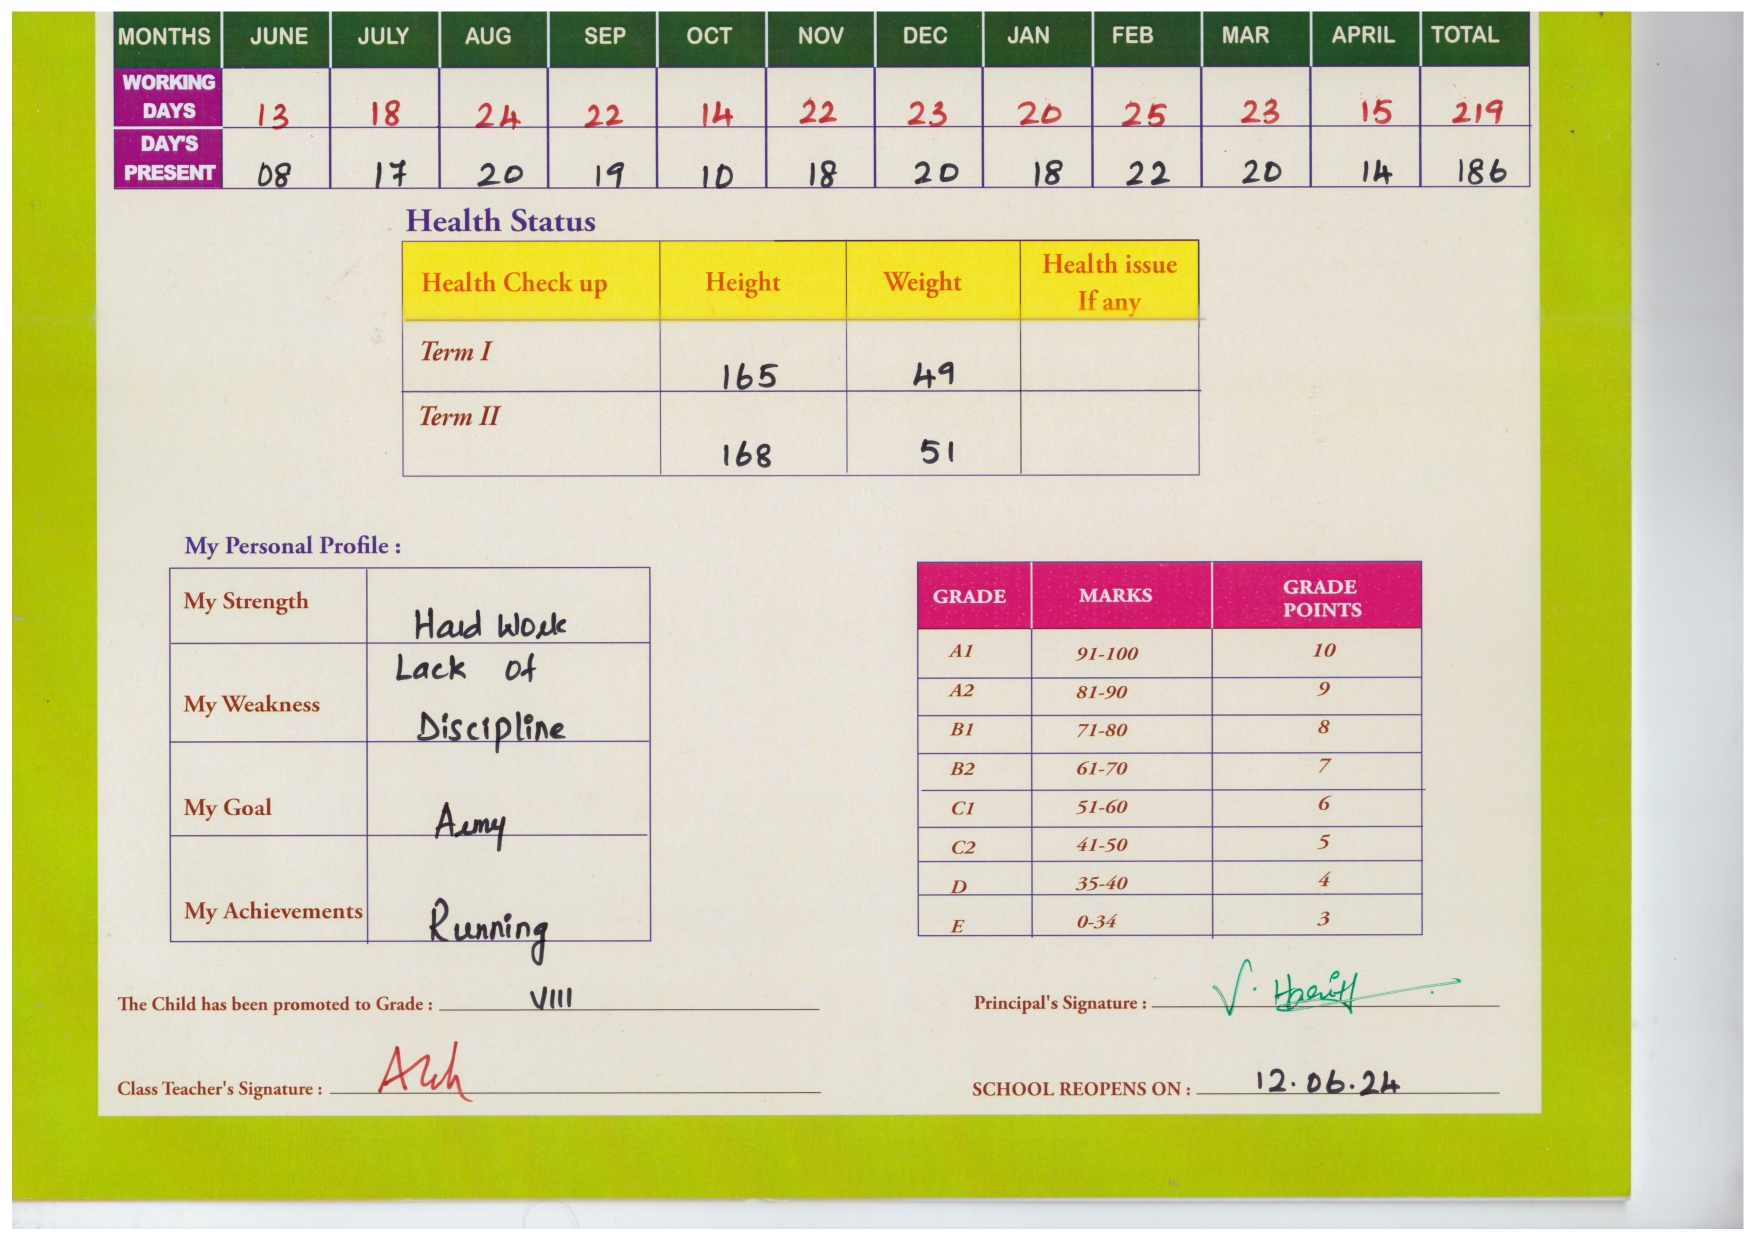 MONTHS JUNE JULY AUG SEP OCT NOV DEC JAN FEB MAR APRIL TOTAL
WORKING DAYS 13 18 24 22 14 22 23 20 25 23 15 219
DAY'S PRESENT 08 17 20 19 10 18 20 18 22 20 14 186
Health Status
Health Check up Height Weight Health issue If any
Term I 165 49
Term II 168 51
My Personal Profile :
My Strength Hard Work
My Weakness Lack Of Discipline
My Goal Army
My Achievements Running
GRADE MARKS GRADE POINTS
A1 91-100 10
A2 81-90 9
B1 71-80 8
B2 61-70 7
C1 51-60 6
C2 41-50 5
D 35-40 4
E 0-34 3
The Child has been promoted to Grade : VIII
Principal's Signature :
Class Teacher's Signature :
SCHOOL REOPENS ON : 12.06.24